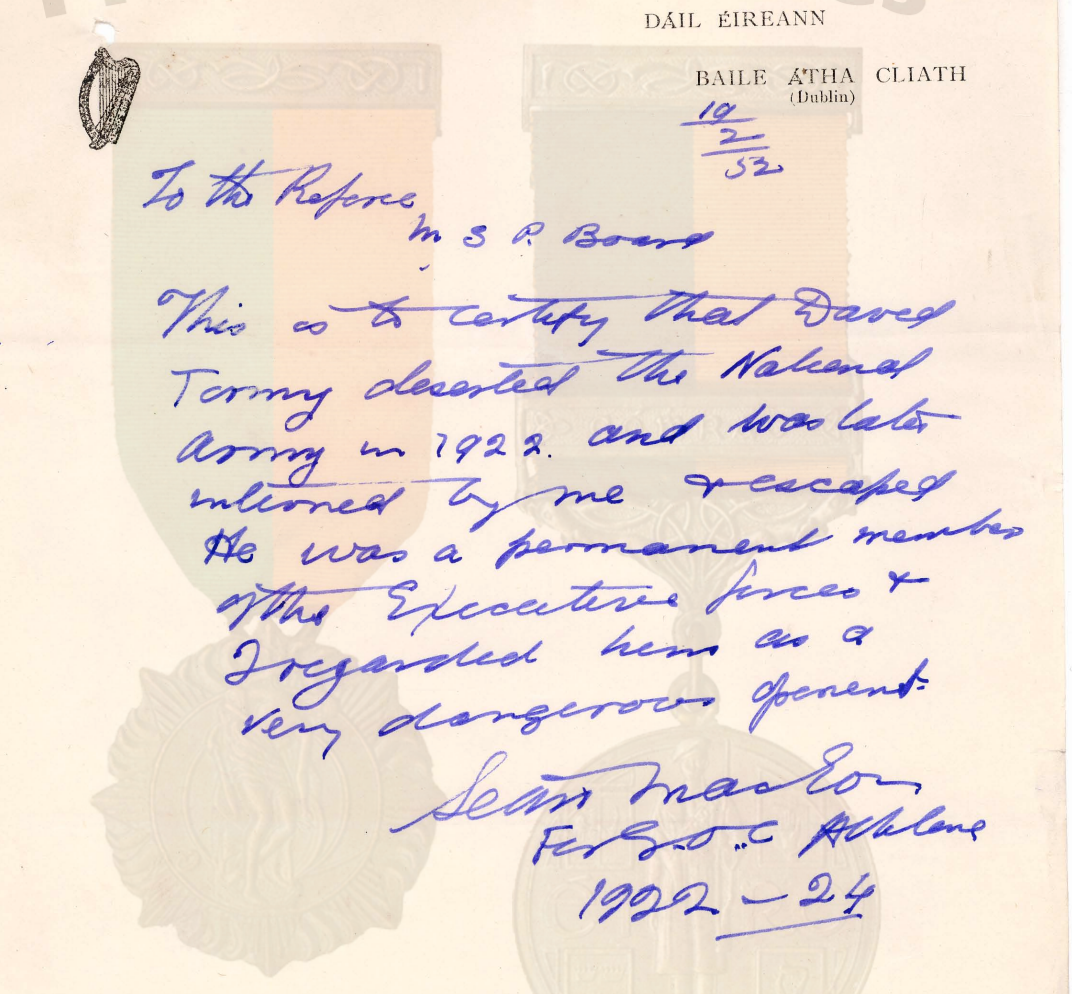 DÁIL ÉIREANN
BAILE ÁTHA CLIATH
(Dublin)
19
2
52
To the Referee
M S P. Board
This is to certify that David
Tormy deserted the National
Army in 1922. and was later
interned by me & escaped
He was a permanent member
of the Executive forces &
I regarded him as a
very dangerous oponent.
Seán MacEoin
For G.O.C Athlone
1922 – 24